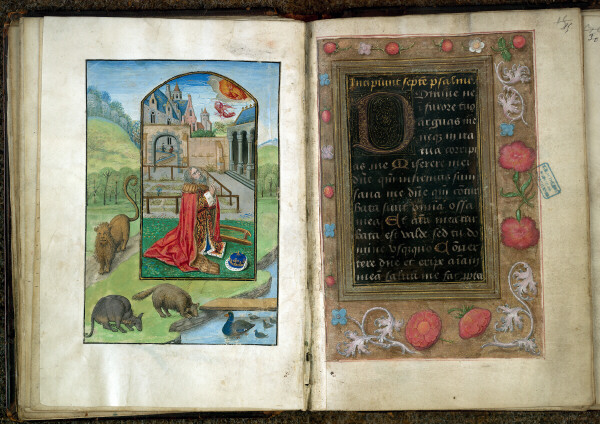 Incipiunt septe psalmi.
Domine ne
furore tuo
arguas me
neq; in ira
tua corripi
as me Miserere mei
dne qm infirmus sum
sana me dne qm contur
bata sunt omnia ossa
mea Et aia mea tur
bata est valde sed tu do
mine usquequo Conuer
tere dne et eripe aiam
mea saluu me fac ppter